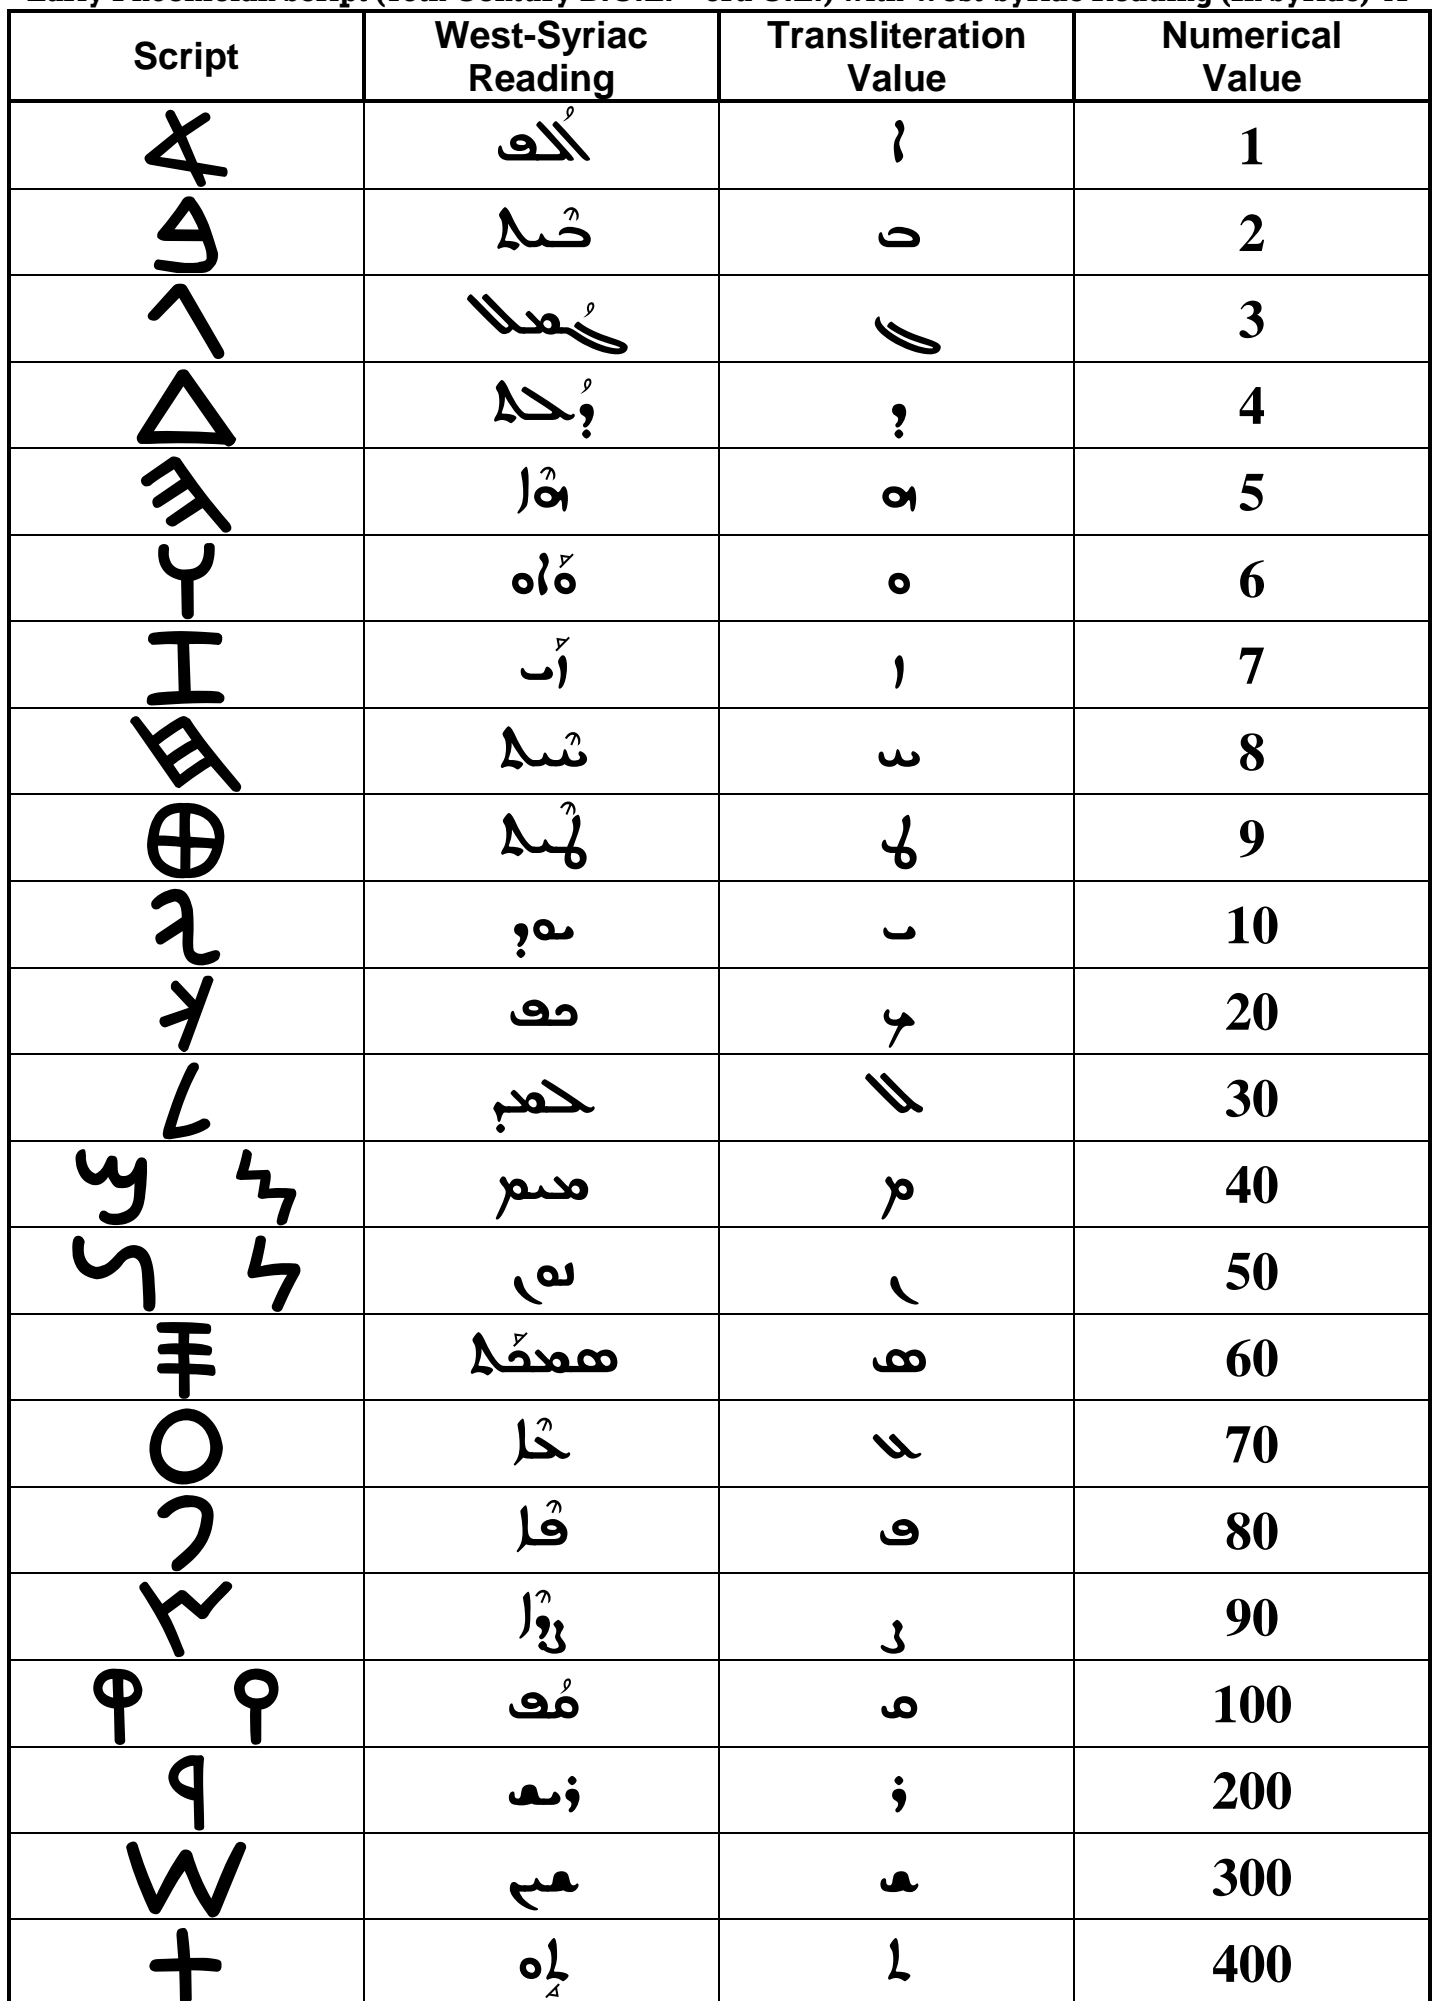 Script West-Syriac Reading Transliteration Value Numerical Value
𐤀 ܐܳܠܦ ܐ 1
𐤁 ܒܶܝܬ ܒ 2
𐤂 ܓܳܡܠ ܓ 3
𐤃 ܕܳܠܬ ܕ 4
𐤄 ܗܶܐ ܗ 5
𐤅 ܘܰܐܘ ܘ 6
𐤆 ܙܰܝ ܙ 7
𐤇 ܚܶܝܬ ܚ 8
𐤈 ܛܶܝܬ ܛ 9
𐤉 ܝܘܕ ܝ 10
𐤊 ܟܦ ܟ 20
𐤋 ܠܡܕ ܠ 30
𐤌 𐤌 ܡܝܡ ܡ 40
𐤍 𐤍 ܢܘܢ ܢ 50
𐤎 ܣܡܟܰܬ ܣ 60
𐤏 ܥܶܐ ܥ 70
𐤐 ܦܶܐ ܦ 80
𐤑 ܨܕܶܐ ܨ 90
𐤒 𐤒 ܩܳܦ ܩ 100
𐤓 ܪܝܫ ܪ 200
𐤔 ܫܝܢ ܫ 300
𐤕 ܬܱܘ ܬ 400